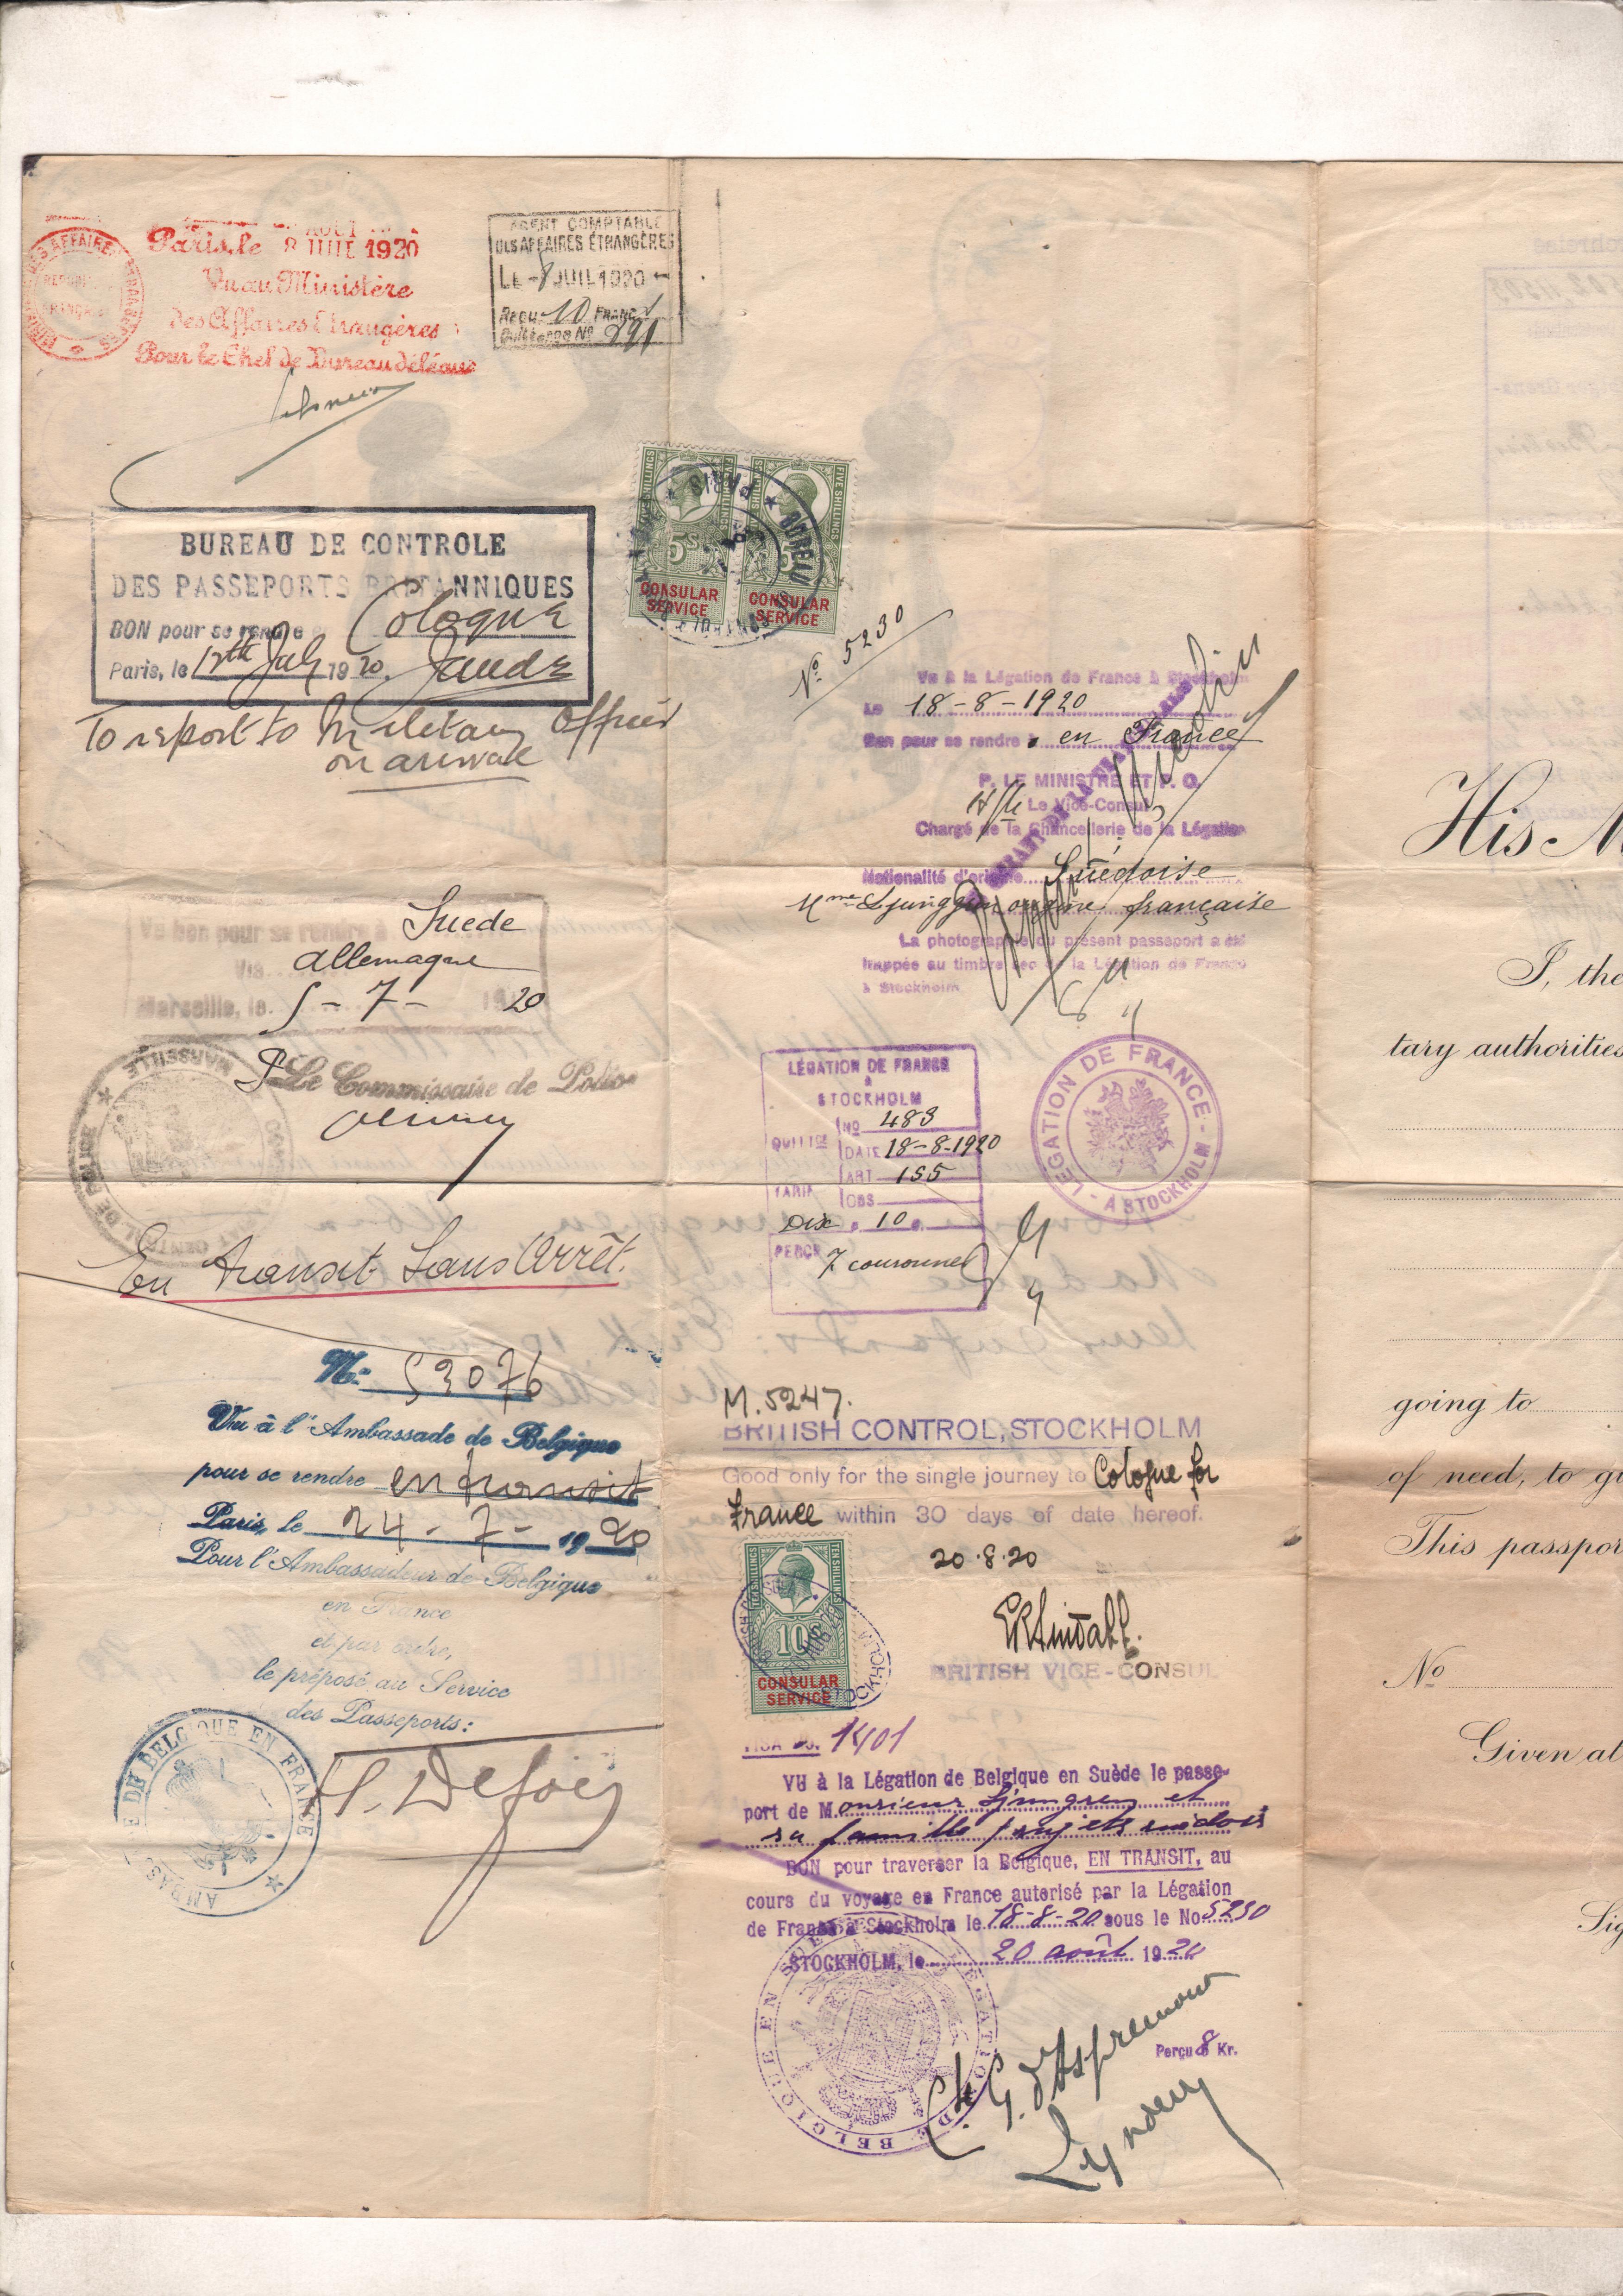 MINISTÈRE DES AFFAIRES ÉTRANGÈRES
RÉPUBLIQUE FRANÇAISE
Paris, le 8 JUIL 1920
AOUT
Vu au Ministère
des Affaires Etrangères
Pour le Chef de Bureau délégué
AGENT COMPTABLE
DES AFFAIRES ÉTRANGÈRES
LE -8 JUIL 1920
REÇU 10 FRANCS
Quittance No 291
BUREAU DE CONTROLE
DES PASSEPORTS BRITANNIQUES
BON pour se rendre à Cologne
Paris, le 12th July 1920.
To report to Military Officer
on arrival
FIVE SHILLINGS
5S
CONSULAR
SERVICE
FIVE SHILLINGS
5S
CONSULAR
SERVICE
BUREAU
PARIS
Vu bon pour se rendre à Suede
Via allemagne
Marseille, le 5 - 7 - 1920
P. Le Commissaire de Police
MARSEILLE
DE POLICE
En transit Sans Arrêt.
No 53076
Vu à l'Ambassade de Belgique
pour se rendre en transit
Paris, le 24 - 7 - 1920
Pour l'Ambassadeur de Belgique
en France
et par ordre,
le préposé au Service
des Passeports:
AMBASSADE DE BELGIQUE EN FRANCE
No 5230
Vu à la Légation de France à Stockholm
Le 18-8-1920
Bon pour se rendre en France
P. LE MINISTRE ET P. O.
Le Vice-Consul
Chargé de la Chancellerie de la Légation
Nationalité d'origine Suédoise
Mme Ljunggren origine française
La photographie du présent passeport a été
frappée au timbre sec de la Légation de France
à Stockholm
LÉGATION DE FRANCE
à
STOCKHOLM
QUITTCE
NO 483
DATE 18-8-1920
TARIF
ART 155
OBS
Dix 10
PERÇU 7 couronnes
LEGATION DE FRANCE - A STOCKHOLM -
M. 5247.
BRITISH CONTROL, STOCKHOLM
Good only for the single journey to Cologne for
France within 30 days of date hereof.
20.8.20
BRITISH VICE-CONSUL
TEN SHILLINGS
10S
CONSULAR
SERVICE
STOCKHOLM
VISA No. 1401
VU à la Légation de Belgique en Suède le passe-
port de Monsieur Ljungren et
sa famille sujets suédois
BON pour traverser la Belgique, EN TRANSIT, au
cours du voyage en France autorisé par la Légation
de France à Stockholm le 18-8-20 sous le No 5230
STOCKHOLM, le 20 août 1920
LEGATION DE BELGIQUE EN SUEDE
Perçu 8 Kr.
Ch G. d'Aspremont
Lynden
His M
I, the
tary authorities
going to
of need, to gi
This passpor
No
Given at
Sig